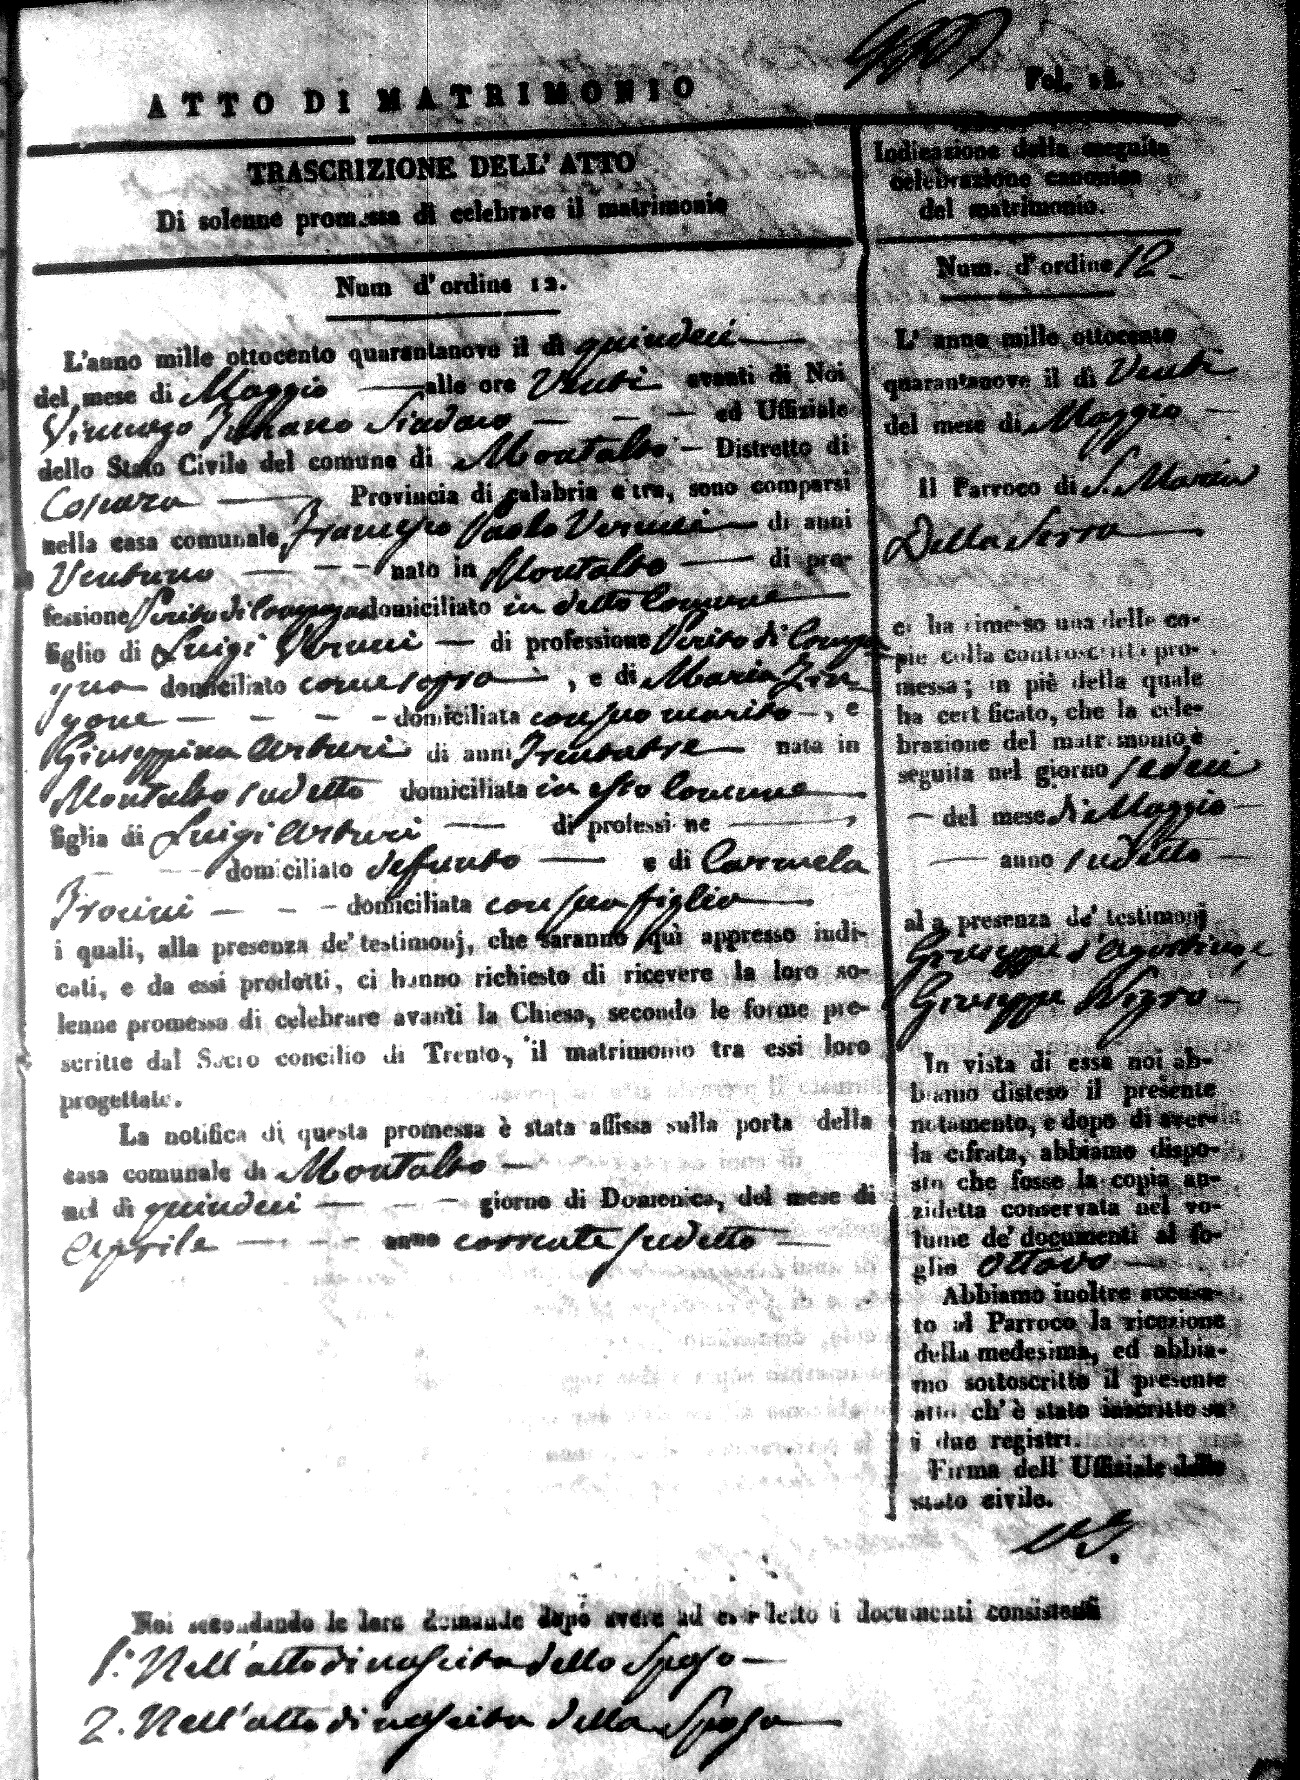 Fol. 12.
ATTO DI MATRIMONIO
TRASCRIZIONE DELL' ATTO
Di solenne promessa di celebrare il matrimonio
Num d'ordine 12.
L'anno mille ottocento quarantanove il dì quindeci
del mese di Maggio alle ore Venti avanti di Noi
Sindaco ed Uffiziale
dello Stato Civile del comune di Montalto Distretto di
Cosenza Provincia di calabria citra, sono comparsi
nella casa comunale Francesco Paolo Vercilli di anni
Ventuno nato in Montalto di pro-
fessione Perito di Campagna domiciliato in detto Comune
figlio di Luigi di professione Perito di Campa
gna domiciliato come sopra, e di Maria Zin
gone domiciliata con suo marito, e
Giuseppina Arturi di anni Trentatre nata in
Montalto sudetto domiciliata in esto Comune
figlia di Luigi Arturi di professi ne
domiciliato deffunto e di Carmela
domiciliata con sua figlia
i quali, alla presenza de' testimonj, che saranno quì appresso indi-
cati, e da essi prodotti, ci hanno richiesto di ricevere la loro so-
lenne promessa di celebrare avanti la Chiesa, secondo le forme pre-
scritte dal Sacro concilio di Trento, il matrimonio tra essi loro
progettato.
La notifica di questa promessa è stata affissa sulla porta della
casa comunale di Montalto
nel dì quindeci giorno di Domenica, del mese di
Aprile anno corrente sudetto
Indicazione della seguita
celebrazione canonica
del matrimonio.
Num. d'ordine 12
L' anno mille ottocento
quarantanove il dì Venti
del mese di Maggio
Il Parroco di S. Maria
Della Serra
ci ha rimesso una delle co-
pie colla controscritta pro-
messa; in piè della quale
ha certificato, che la cele-
brazione del matrimonio è
seguita nel giorno sedeci
del mese di Maggio
anno sudetto
alla presenza de' testimonj
Giuseppe d'Agostino, e
Giuseppe
In vista di essa noi ab-
biamo disteso il presente
notamento, e dopo di aver-
la cifrata, abbiamo dispo-
sto che fosse la copia an-
zidetta conservata nel vo-
lume de' documenti al fo-
glio ottavo
Abbiamo inoltre accusa-
to al Parroco la ricezione
della medesima, ed abbia-
mo sottoscritto il presente
atto ch' è stato inscritto su'
i due registri.
Firma dell' Uffiziale dello
stato civile.
Noi secondando le loro domande dopo avere ad essi letto i documenti consistenti
1.° Nell'atto di nascita dello Sposo
2. Nell'atto di nascita della Sposa